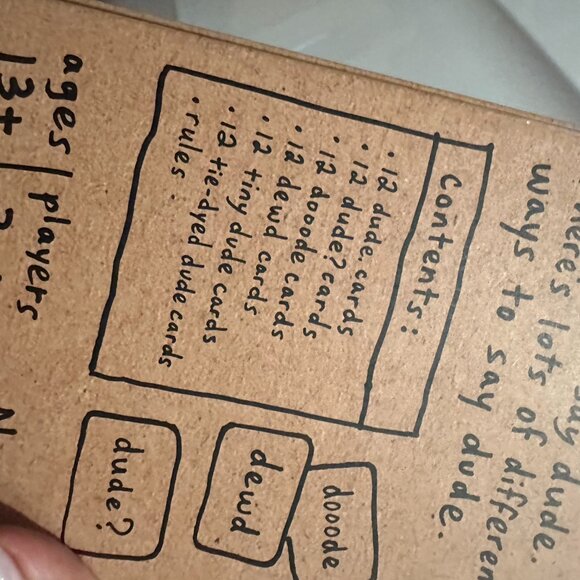 dude.
theres lots of different
ways to say dude.
contents:
• 12 dude. cards
• 12 dude? cards
• 12 dooode cards
• 12 dewd cards
• 12 tiny dude cards
• 12 tie-dyed dude cards
• rules.
dooode
dewd
dude?
ages | players
13+ |